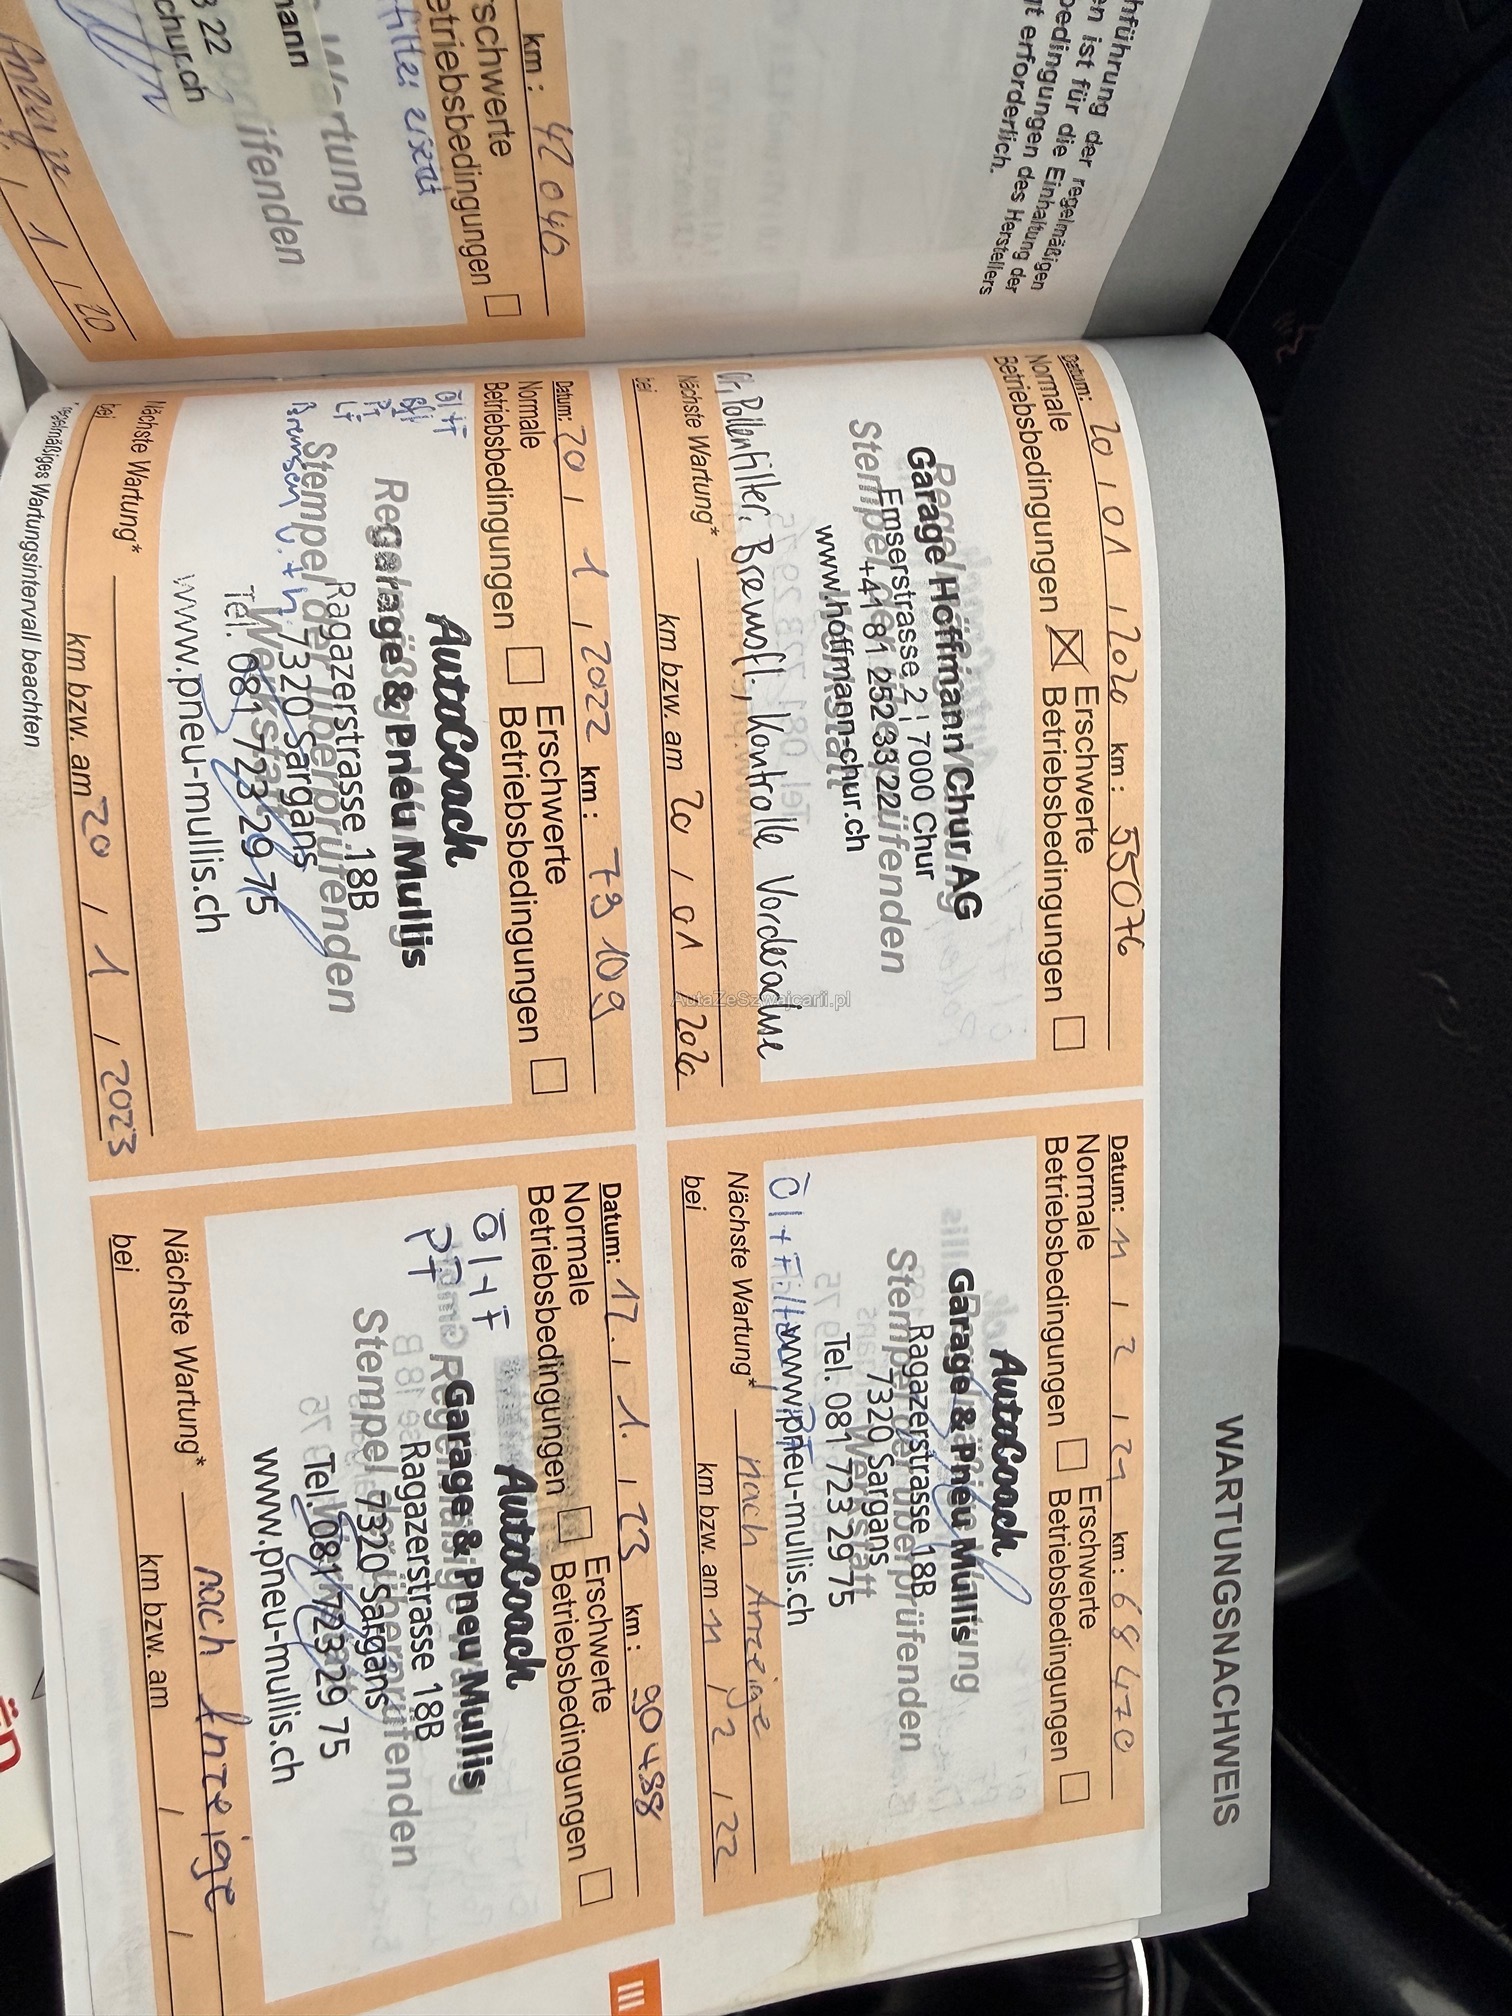 hführung der regelmäßigen
en ist für die Einhaltung der
bedingungen des Herstellers
t erforderlich.
km: 42 040
rschwerte
etriebsbedingungen
ersetzt
Wartung
ifenden
mann
3 22
chur.ch
1 / 20
WARTUNGSNACHWEIS
Datum: 20 / 01 / 2020 km: 55076
Normale Betriebsbedingungen
Erschwerte Betriebsbedingungen
Garage Hoffmann Chur AG
Emserstrasse 2 | 7000 Chur
+41 81 252 33 22
www.hoffmann-chur.ch
Stempel der überprüfenden
Pollenfilter, Bremsfl., Kontrolle Vorderachse
Nächste Wartung*
bei km bzw. am 20 / 01 / 2020
Datum: 11 / 2 / 21 km: 68 470
Normale Betriebsbedingungen
Erschwerte Betriebsbedingungen
AutoCoach
Garage & Pneu Mullis
Ragazerstrasse 18B
7320 Sargans
Tel. 081 723 29 75
www.pneu-mullis.ch
Stempel der überprüfenden
Werkstatt
Öl + Filter
Nächste Wartung* nach Anzeige
bei km bzw. am 11 / 2 / 22
Datum: 20 / 1 / 2022 km: 79 109
Normale Betriebsbedingungen
Erschwerte Betriebsbedingungen
Öl + F
PF
LF
Bremsen
AutoCoach
Garage & Pneu Mullis
Ragazerstrasse 18B
7320 Sargans
Tel. 081 723 29 75
www.pneu-mullis.ch
Stempel der überprüfenden
Werkstatt
Nächste Wartung*
bei km bzw. am 20 / 1 / 2023
Datum: 17. / 1. / 23 km: 90 488
Normale Betriebsbedingungen
Erschwerte Betriebsbedingungen
Öl + F
PF
AutoCoach
Garage & Pneu Mullis
Ragazerstrasse 18B
7320 Sargans
Tel. 081 723 29 75
www.pneu-mullis.ch
Stempel der überprüfenden
Nächste Wartung* nach Anzeige
bei km bzw. am / /
regelmäßiges Wartungsintervall beachten
III
AutaZeSzwajcarii.pl